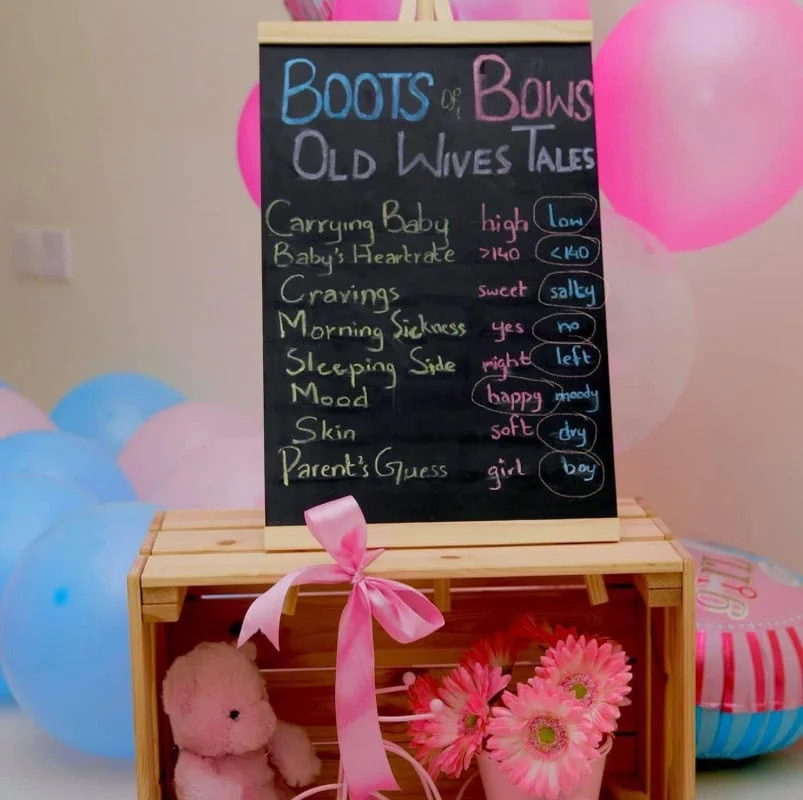 BOOTS OR BOWS
OLD WIVES TALES
Carrying Baby high low
Baby's Heartrate >140 <140
Cravings sweet salty
Morning Sickness yes no
Sleeping Side right left
Mood happy moody
Skin soft dry
Parent's Guess girl boy